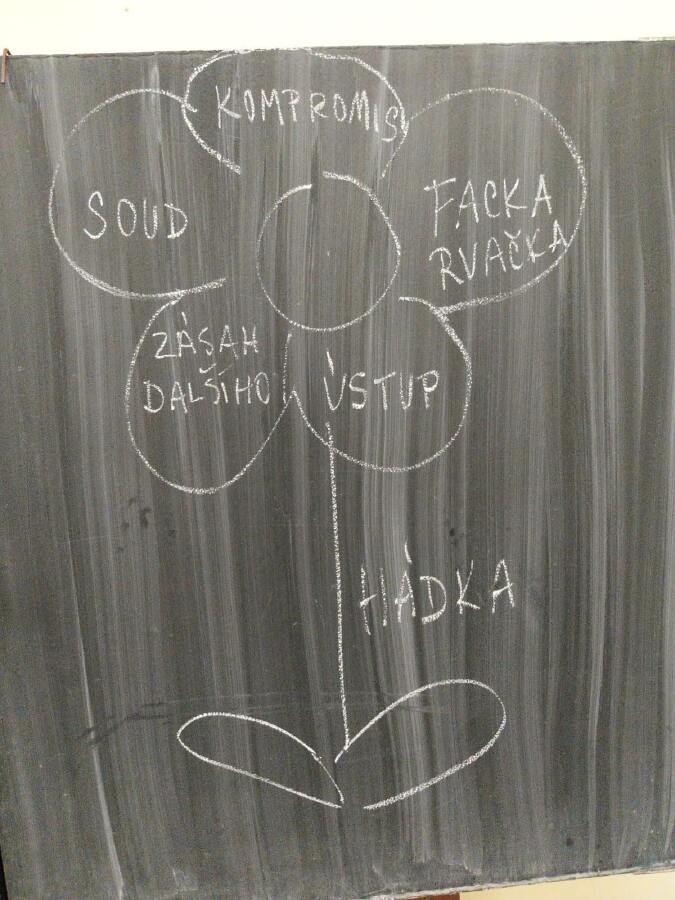 KOMPROMIS
SOUD
FACKA
RVAČKA
ZÁSAH
DALŠÍHO
ÚSTUP
HÁDKA